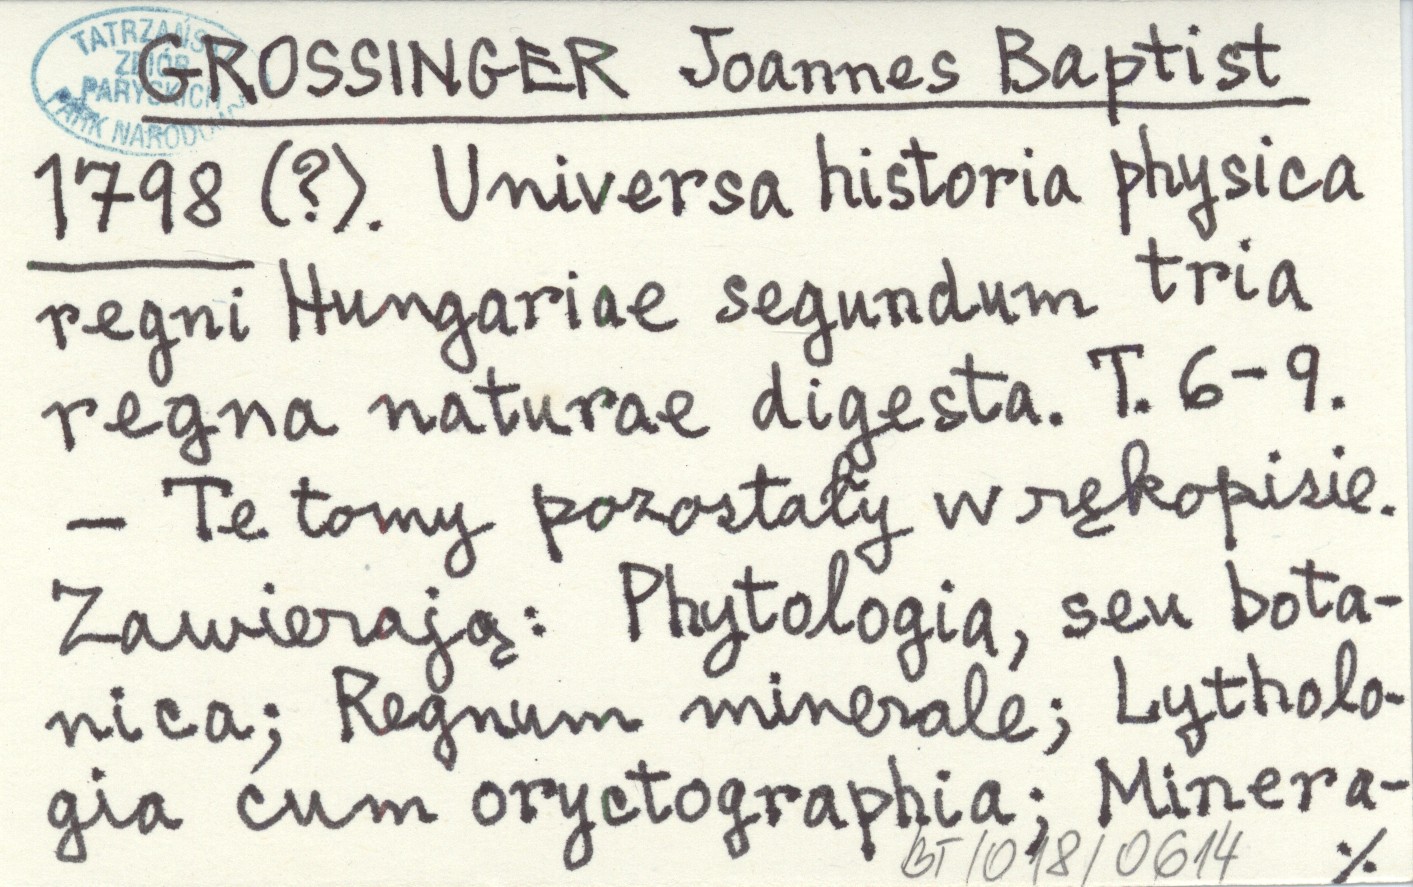 TATRZAŃSKI
ZBIÓR
PARYSKICH
PARK NARODOWY
GROSSINGER Joannes Baptist
1798 (?). Universa historia physica
regni Hungariae segundum tria
regna naturae digesta. T. 6-9.
— Te tomy pozostały w rękopisie.
Zawierają: Phytologia, seu bota-
nica; Regnum minerale; Lytholo-
gia cum oryctographia; Minera-
BT/018/0614
./.